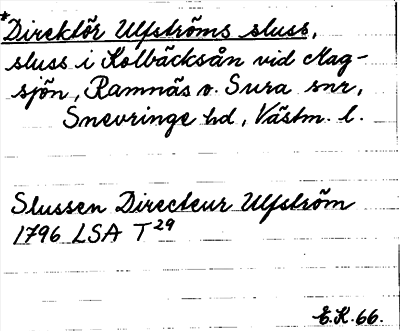 *Direktör Ulfströms sluss,
sluss i Kolbäcksån vid Mag-
sjön, Ramnäs o. Sura snr,
Snevringe hd, Västm. l.
Slussen Directeur Ulfström
1796 LSA T29
E.K. 66.